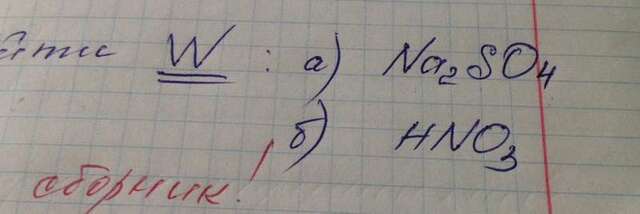 W : а) Na₂SO₄
б) HNO₃
сборник!